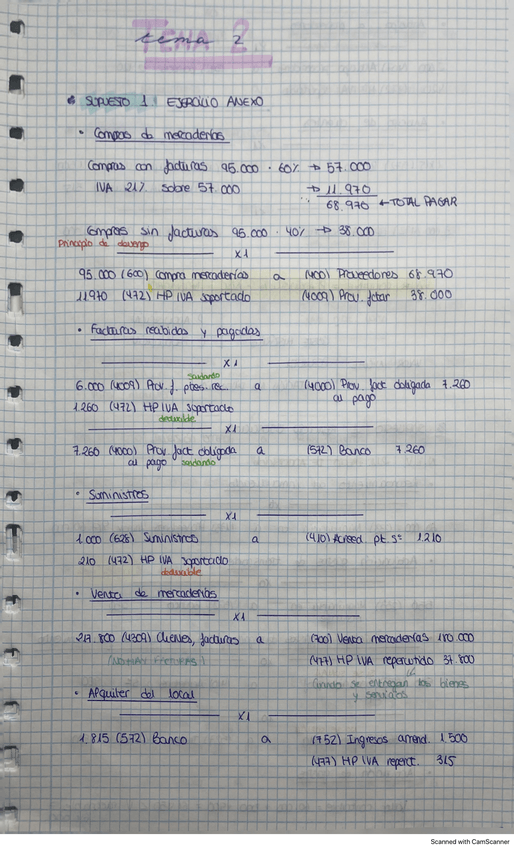 TEMA 2
tema 2
SUPUESTO 1: EJERCICIO ANEXO
• Compras de mercaderías
Compras con facturas 95.000 · 60% → 57.000
IVA 21% sobre 57.000 → 11.970
68.970 ← TOTAL PAGAR
Compras sin facturas 95.000 · 40% → 38.000
Principio de devengo
X1
95.000 (600) Compra mercaderías a (400) Proveedores 68.970
11970 (472) HP IVA soportado (4009) Prov. fctar 38.000
• Facturas recibidas y pagadas
X1
saldando
6.000 (4009) Prov. f. ptes. rec. a (4000) Prov fact obligada 7.260
al pago
1.260 (472) HP IVA soportado
deducible
X1
7.260 (4000) Prov fact obligada a (572) Banco 7.260
al pago saldando
• Suministros
X1
1.000 (628) Suministros a (410) Acreed pt sº 1.210
210 (472) HP IVA soportado
deducible
• Venta de mercaderías
X1
217.800 (4309) Clientes, facturas a (700) Venta mercaderías 180.000
(477) HP IVA repercutido 37.800
Cuando se entregan los bienes
y servicios
• Alquiler del local
X1
1.815 (572) Banco a (752) Ingresos arrend. 1.500
(477) HP IVA reperct. 315
Scanned with CamScanner